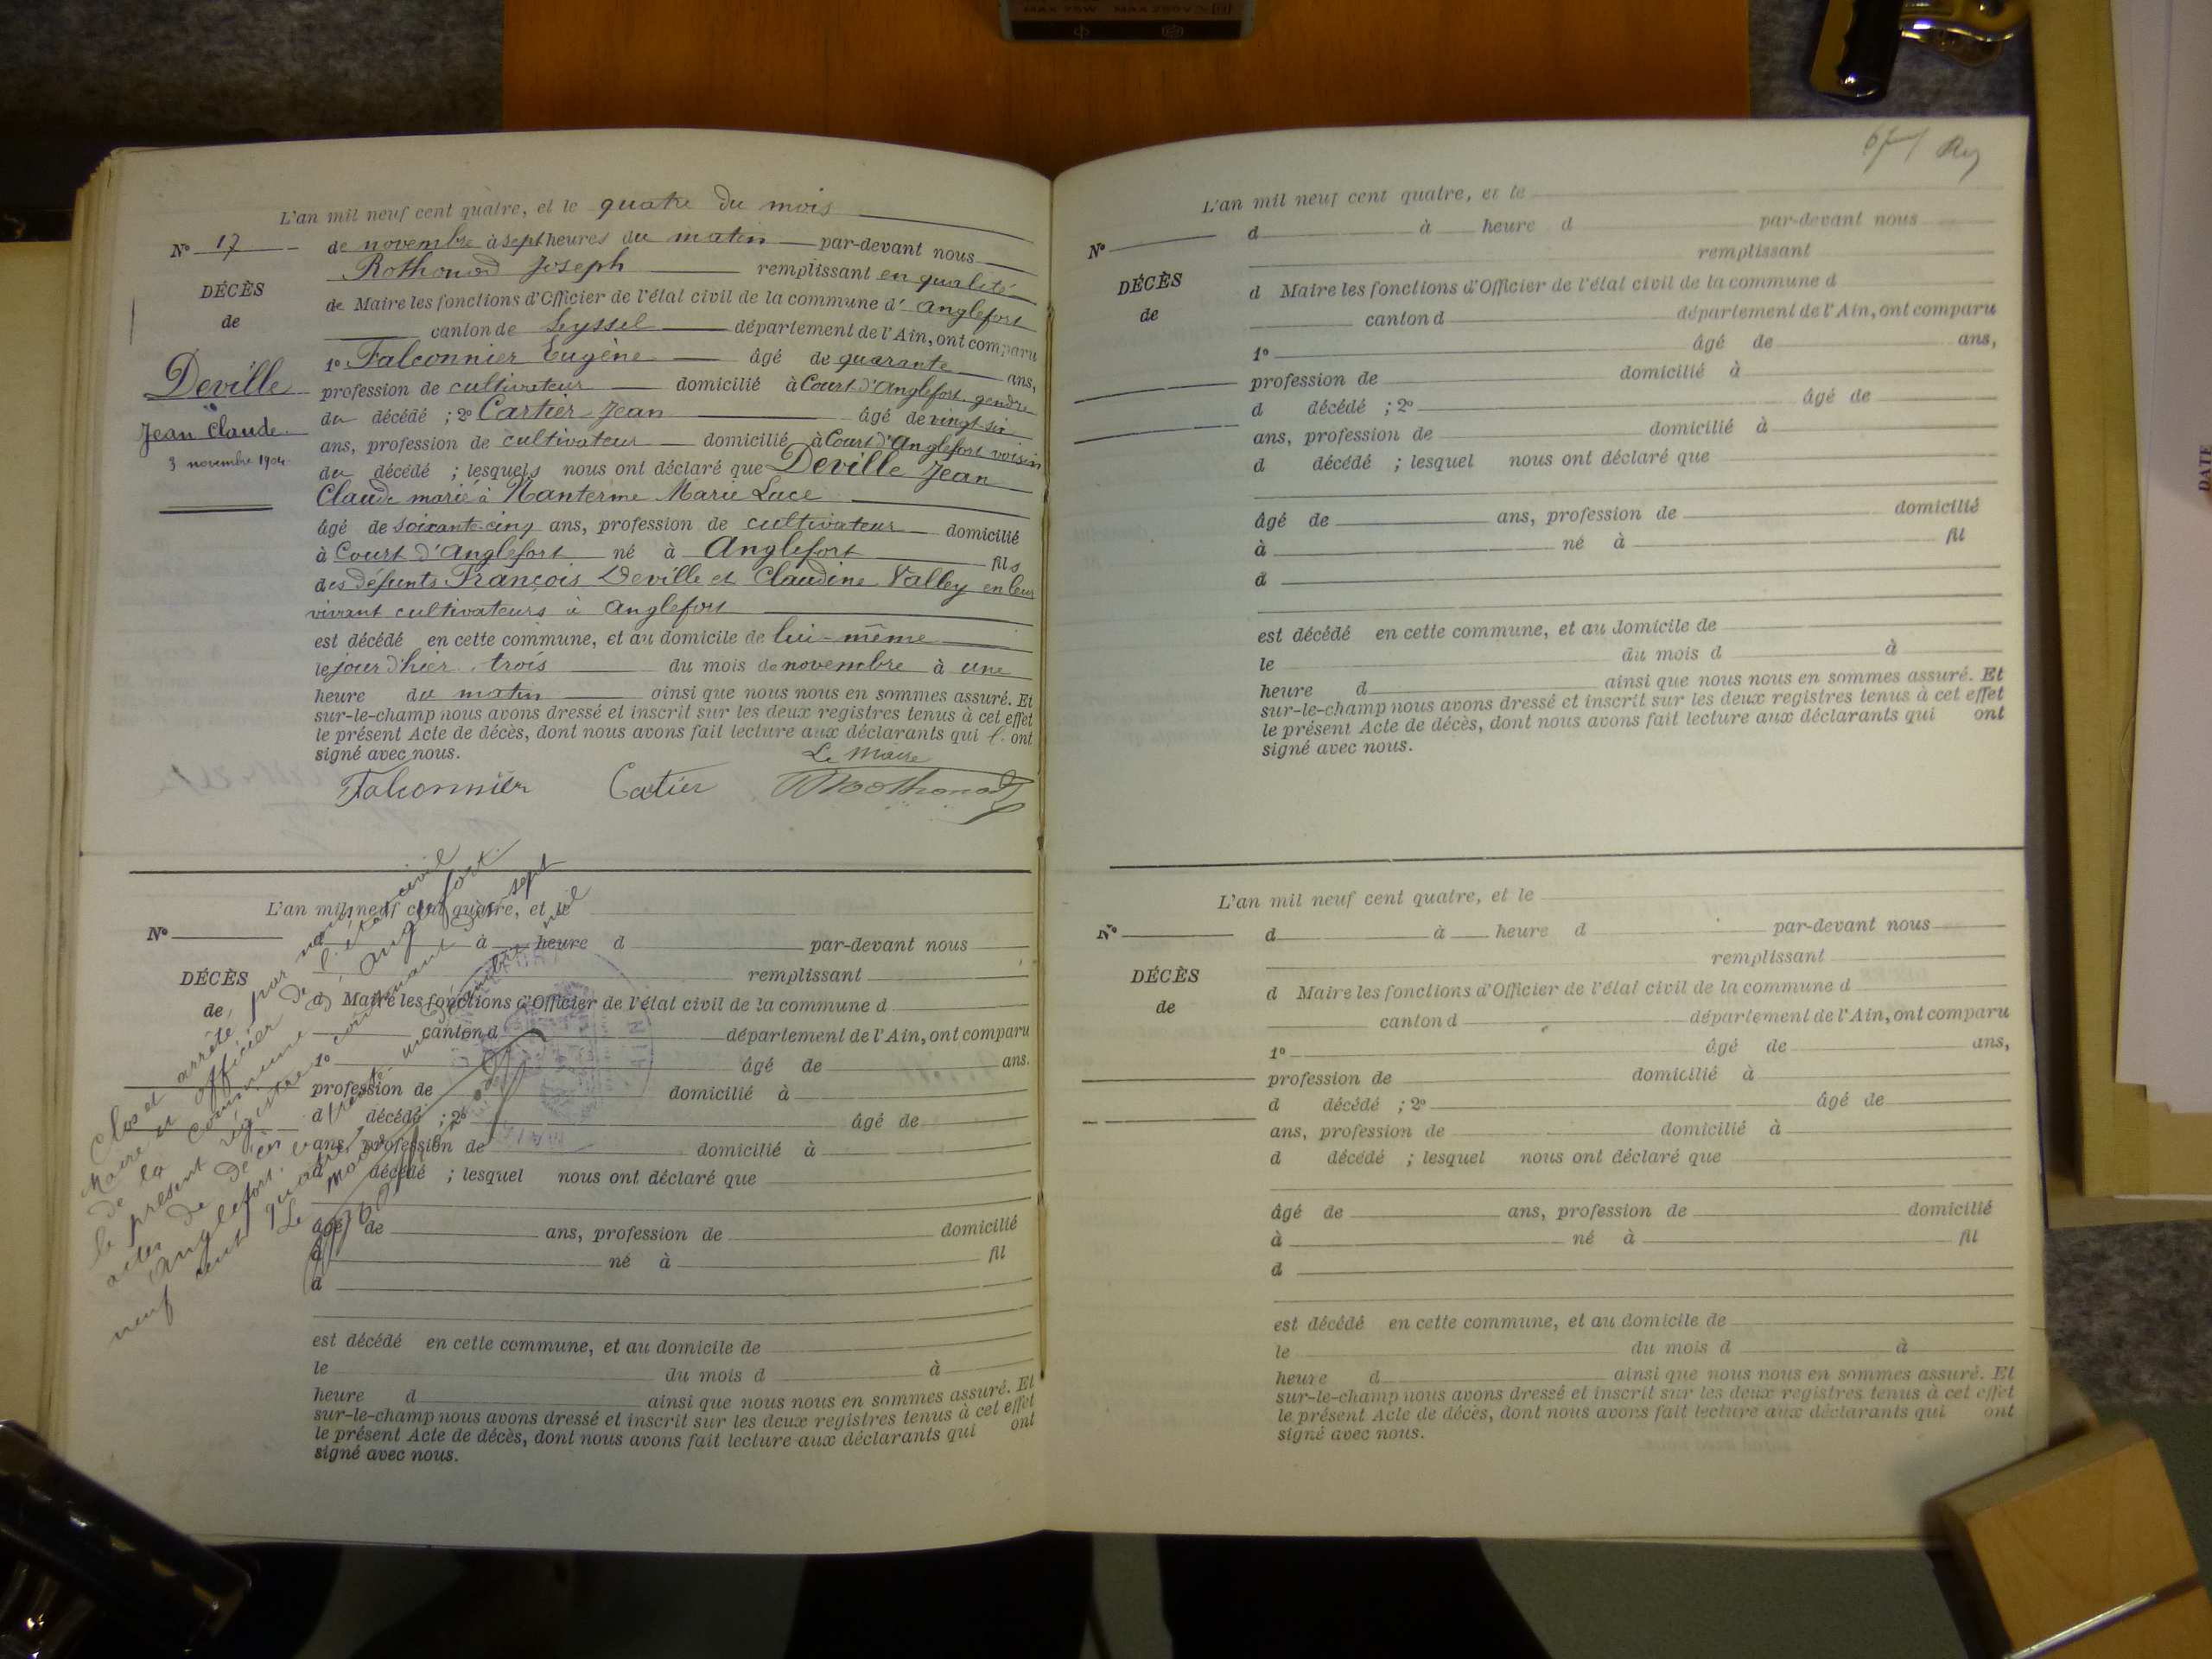 MAX 75W MAX 250V
L'an mil neuf cent quatre, et le quatre du mois
N° 17
de novembre à sept heures du matin par-devant nous
Rothonod Joseph remplissant en qualité
DÉCÈS
de
de Maire les fonctions d'Officier de l'état civil de la commune d' Anglefort
canton de Seyssel département de l'Ain, ont comparu
1° Falconnier Eugène âgé de quarante ans,
Deville
Jean Claude
3 novembre 1904
profession de cultivateur domicilié à Court d'Anglefort gendre
du décédé ; 2° Cartier Jean âgé de vingt-six
ans, profession de cultivateur domicilié à Court d'Anglefort voisin
du décédé ; lesquels nous ont déclaré que Deville Jean
Claude marié à Nanterme Marie Luce
âgé de soixante-cinq ans, profession de cultivateur domicilié
à Court d'Anglefort né à Anglefort fils
des défunts François Deville et Claudine Valley en leur
vivant cultivateurs à Anglefort
est décédé en cette commune, et au domicile de lui-même
le jour d'hier trois du mois de novembre à une
heure du matin ainsi que nous nous en sommes assuré. Et
sur-le-champ nous avons dressé et inscrit sur les deux registres tenus à cet effet
le présent Acte de décès, dont nous avons fait lecture aux déclarants qui l' ont
signé avec nous.
Le Maire
Falconnier Catier Rothonod
L'an mil neuf cent quatre, et le
N°
d à heure d par-devant nous
remplissant
DÉCÈS
de
d Maire les fonctions d'Officier de l'état civil de la commune d
canton d département de l'Ain, ont comparu
1° âgé de ans.
profession de domicilié à
d décédé ; 2° âgé de
ans, profession de domicilié à
d décédé ; lesquel nous ont déclaré que
âgé de ans, profession de domicilié
à né à fil
d
est décédé en cette commune, et au domicile de
le du mois d à
heure d ainsi que nous nous en sommes assuré. Et
sur-le-champ nous avons dressé et inscrit sur les deux registres tenus à cet effet
le présent Acte de décès, dont nous avons fait lecture aux déclarants qui ont
signé avec nous.
Clos et arrêté par nous
Maire et officier de l'état civil
de la commune d'Anglefort
le présent registre contenant dix-sept
actes de décès
Anglefort, le trente un Décembre mil
neuf cent quatre
Le Maire
L'an mil neuf cent quatre, et le
N°
d à heure d par-devant nous
remplissant
DÉCÈS
de
d Maire les fonctions d'Officier de l'état civil de la commune d
canton d département de l'Ain, ont comparu
1° âgé de ans,
profession de domicilié à
d décédé ; 2° âgé de
ans, profession de domicilié à
d décédé ; lesquel nous ont déclaré que
âgé de ans, profession de domicilié
à né à fil
d
est décédé en cette commune, et au domicile de
le du mois d à
heure d ainsi que nous nous en sommes assuré. Et
sur-le-champ nous avons dressé et inscrit sur les deux registres tenus à cet effet
le présent Acte de décès, dont nous avons fait lecture aux déclarants qui ont
signé avec nous.
L'an mil neuf cent quatre, et le
N°
d à heure d par-devant nous
remplissant
DÉCÈS
de
d Maire les fonctions d'Officier de l'état civil de la commune d
canton d département de l'Ain, ont comparu
1° âgé de ans,
profession de domicilié à
d décédé ; 2° âgé de
ans, profession de domicilié à
d décédé ; lesquel nous ont déclaré que
âgé de ans, profession de domicilié
à né à fil
d
est décédé en cette commune, et au domicile de
le du mois d à
heure d ainsi que nous nous en sommes assuré. Et
sur-le-champ nous avons dressé et inscrit sur les deux registres tenus à cet effet
le présent Acte de décès, dont nous avons fait lecture aux déclarants qui ont
signé avec nous.
DATE